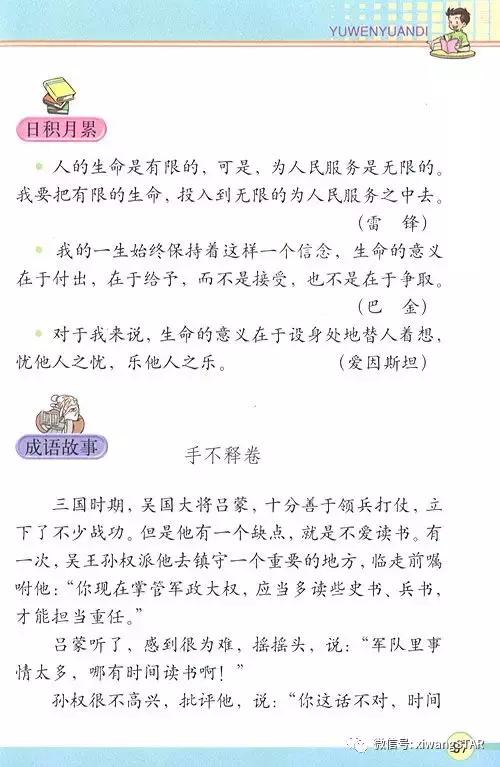 YUWENYUANDI
日积月累
人的生命是有限的，可是，为人民服务是无限的。
我要把有限的生命，投入到无限的为人民服务之中去。
（雷　锋）
我的一生始终保持着这样一个信念，生命的意义
在于付出，在于给予，而不是接受，也不是在于争取。
（巴　金）
对于我来说，生命的意义在于设身处地替人着想，
忧他人之忧，乐他人之乐。　（爱因斯坦）
成语故事
手不释卷
三国时期，吴国大将吕蒙，十分善于领兵打仗，立
下了不少战功。但是他有一个缺点，就是不爱读书。有
一次，吴王孙权派他去镇守一个重要的地方，临走前嘱
咐他：“你现在掌管军政大权，应当多读些史书、兵书，
才能担当重任。”
吕蒙听了，感到很为难，摇摇头，说：“军队里事
情太多，哪有时间读书啊！”
孙权很不高兴，批评他，说：“你这话不对，时间
87
微信号: xiwangSTAR